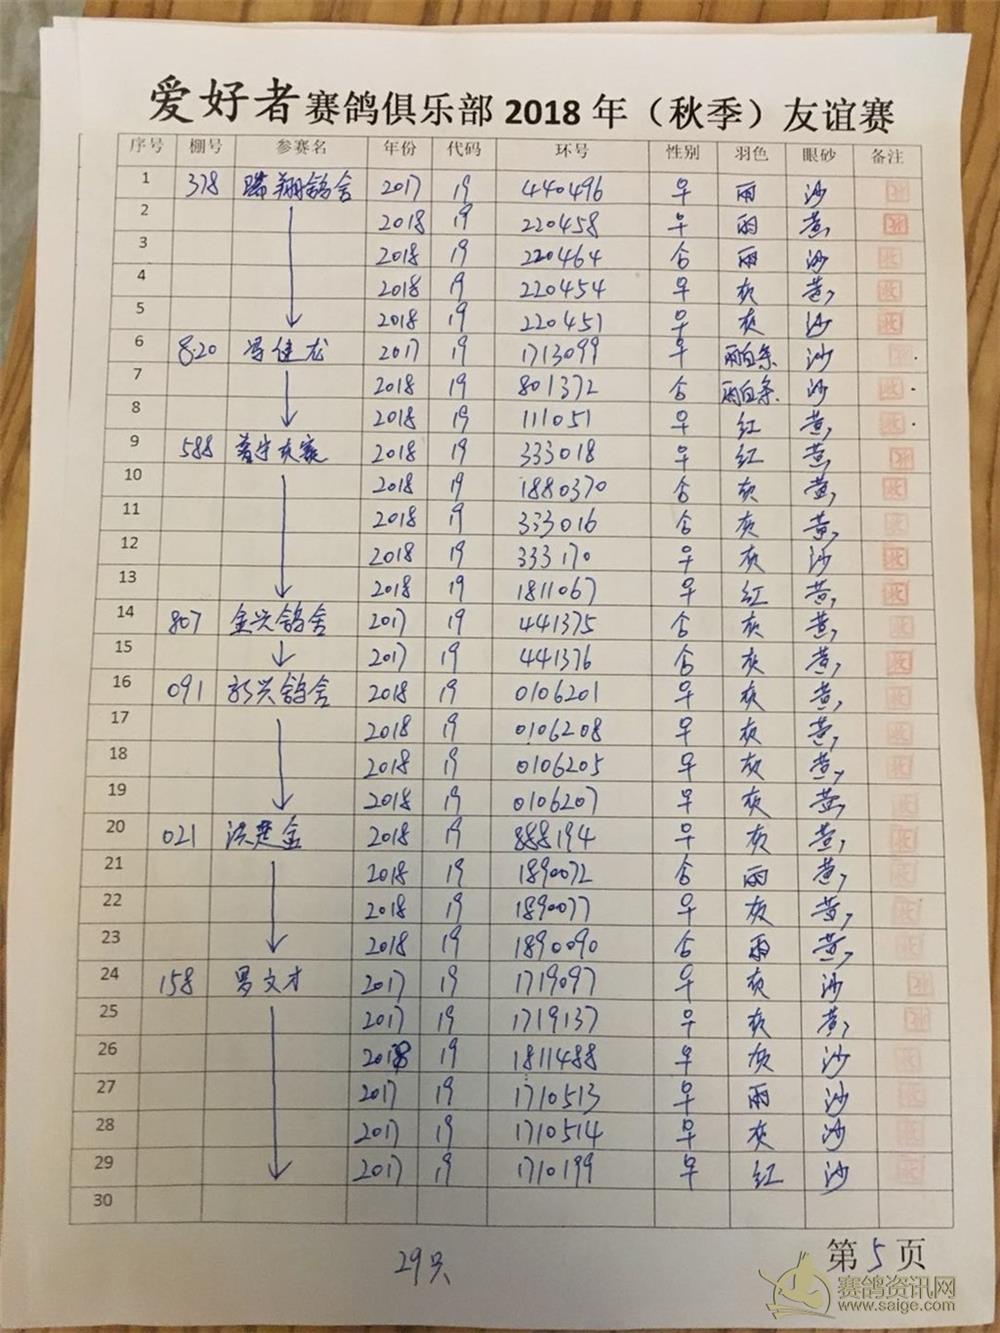 爱好者赛鸽俱乐部2018年（秋季）友谊赛
序号 棚号 参赛名 年份 代码 环号 性别 羽色 眼砂 备注
1 378 瑞翔鸽舍 2017 19 440496 早 雨 沙
2 2018 19 220458 早 雨 黄
3 2018 19 220464 合 雨 沙
4 2018 19 220454 早 灰 黄
5 2018 19 220451 早 灰 沙
6 820 冯健龙 2017 19 1713099 早 雨白条 沙
7 2018 19 801372 合 雨白条 沙
8 2018 19 111051 早 红 黄
9 588 2018 19 333018 早 红 黄
10 2018 19 1880370 合 灰 黄
11 2018 19 333016 合 灰 黄
12 2018 19 333170 早 灰 沙
13 2018 19 1811067 早 红 黄
14 807 金兴鸽舍 2017 19 441375 合 灰 黄
15 2017 19 441376 合 灰 黄
16 091 新兴鸽舍 2018 19 0106201 早 灰 黄
17 2018 19 0106208 早 灰 黄
18 2018 19 0106205 早 灰 黄
19 2018 19 0106207 早 灰 黄
20 021 洪楚金 2018 19 888194 早 灰 黄
21 2018 19 1890072 合 雨 黄
22 2018 19 1890077 早 灰 黄
23 2018 19 1890090 合 雨 黄
24 158 罗文才 2017 19 1719097 早 灰 沙
25 2017 19 1719137 早 灰 黄
26 2018 19 1811488 早 灰 沙
27 2017 19 1710513 早 雨 沙
28 2017 19 1710514 早 灰 沙
29 2017 19 1710199 早 红 沙
30
29只
第5页
赛鸽资讯网
www.saige.com